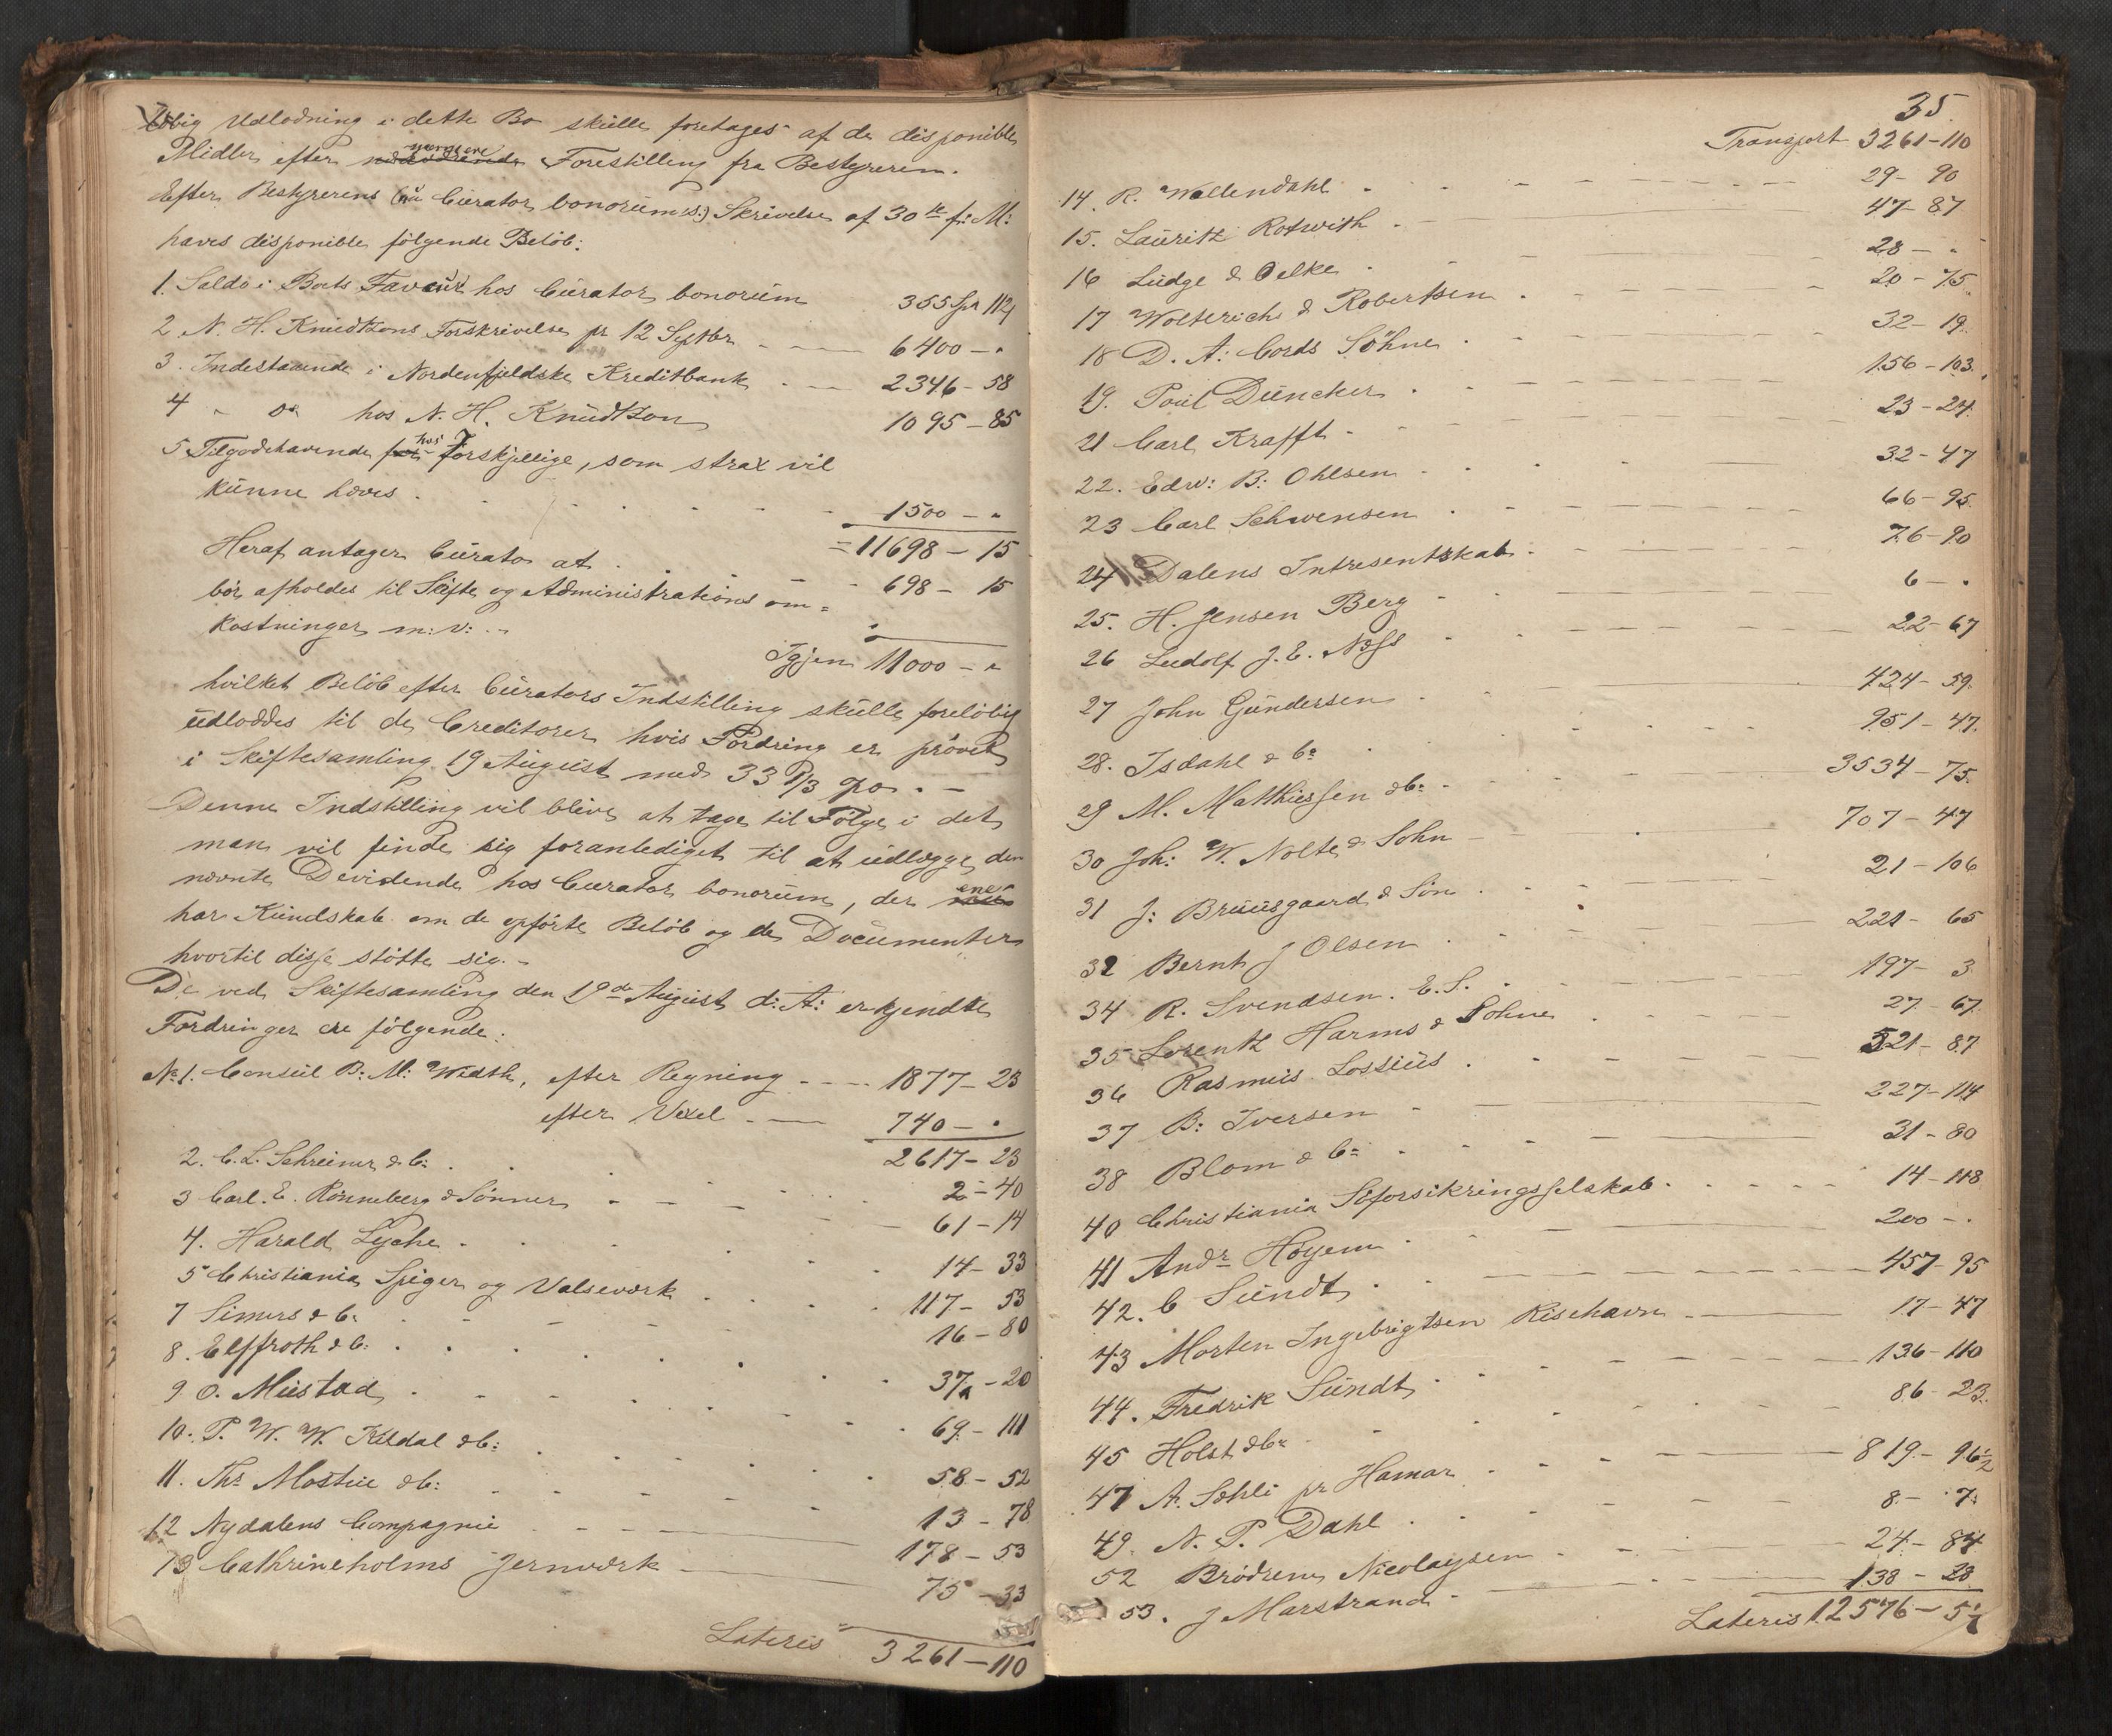 løbig Udlodning i dette Bo skulle foretages af de disponible
Midler efter nærmere Forestilling fra Bestyreren.
Efter Bestyrerens (nu Curator bonorum:s:) Skrivelse af 30te f: M:
haves disponible følgende Beløb:
1. Saldo i Boets Faveur hos Curator bonorum 355 Spd 112
2 N. H. Knudtzons Forskrivelse pr 12 Septbr - 6400 - "
3. Indestaaende i Nordenfjeldske Kreditbank - 2346 - 58
4 - Do hos N. H. Knudtzon 1095 - 85
5 Tilgodehavende for hos Forskjellige, som strax vil
kunne hæves . 1500 - "
Heraf antager Curator at = 11698 - 15
bør afholdes til Skifte og Administrations om= 698 - 15
kostninger m: v: . -
Igjen 11000 - "
hvilket Beløb efter Curators Indstilling skulle foreløbig
udloddes til de Creditorer hvis Fordring er prøvet
i Skiftesamling 19 August med 33 1/3 pCt. -
Denne Indstilling vil blive at tage til Følge i det
man vil finde sig foranlediget til at udlægge den
nævnte Devidende hos Curator bonorum, der ene
har Kundskab om de opførte Beløb og de Documenter
hvortil disse støtte sig. -
De ved Skiftesamling den 19de August d: A: erkjendte
Fordringer ere følgende:
No 1. Consul B: M: Width, efter Regning - 1877 - 23
efter Vexel - 740 - "
2617 - 23
2. C. L. Schreiner & C: . 2 - 40
3 Carl. E. Rønneberg & Sønner - 61 - 14
4. Harald Lyche . 14 - 33
5 Christiania Spiger og Valseværk . 117 - 53
7 Simers & C: . 16 - 80
8. Elffroth & C: . 37 - 20
9 O. Mustad . 69 - 111
10. P. W. W. Kildal & C: . 58 - 52
11. Ths Mostue & C: . 13 - 78
12 Nydalens Compagnie . 178 - 53
13 Cathrineholms Jernværk - 75 - 33
Lateris 3261 - 110
35
Transport 3261 - 110
14. R. Wallendahl . 29 - 90
15. Lauritz Rotwith . 47 - 87
16 Lüdge & Oelke . 28 - "
17 Wolterich & Robertsen . 20 - 75
18 D. A: Cords Söhne . 32 - 19
19. Poul Duncker . 156 - 103
21 Carl Krafft - 23 - 24
22. Edw: B: Ohlsen . 32 - 47
23 Carl Schwensen . 66 - 95
24 Dalens Intresentskab . 76 - 90
25. H. Jensen Berg - 6 - "
26 Ludolf J. E. Næss - 22 - 67
27 John Gundersen . 424 - 59
28. Isdahl & Co . 951 - 47
29 M. Matthiessen & C: . 3534 - 75
30 Joh: W. Nolte & Sohn - 707 - 47
31 J: Bruusgaard & Søn . 21 - 106
32 Bernt J Olsen . 221 - 65
34 R. Svendsen. E. S. . 197 - 3
35 Lorentz Harms & Sohne . 27 - 67
36 Rasmus Lossius . 521 - 87
37 B: Iversen - 227 - 114
38 Blom & Co - 31 - 80
40 Christiania Søforsikringsselskab . 14 - 118
41 Andr Høyem . 200 - "
42. C Sundt . 457 - 95
43 Morten Ingebrigtsen Risehavn - 17 - 47
44. Fredrik Sundt . 136 - 110
45 Holst & Co . 86 - 23
47 A. Sæhli pr Hamar . 819 - 96 1/2
49. N. P. Dahl . 8 - 7
52 Brødrene Nicolaysen . 24 - 84
53. J Marstrand - 138 - 28
Lateris 12576 - 5 1/2